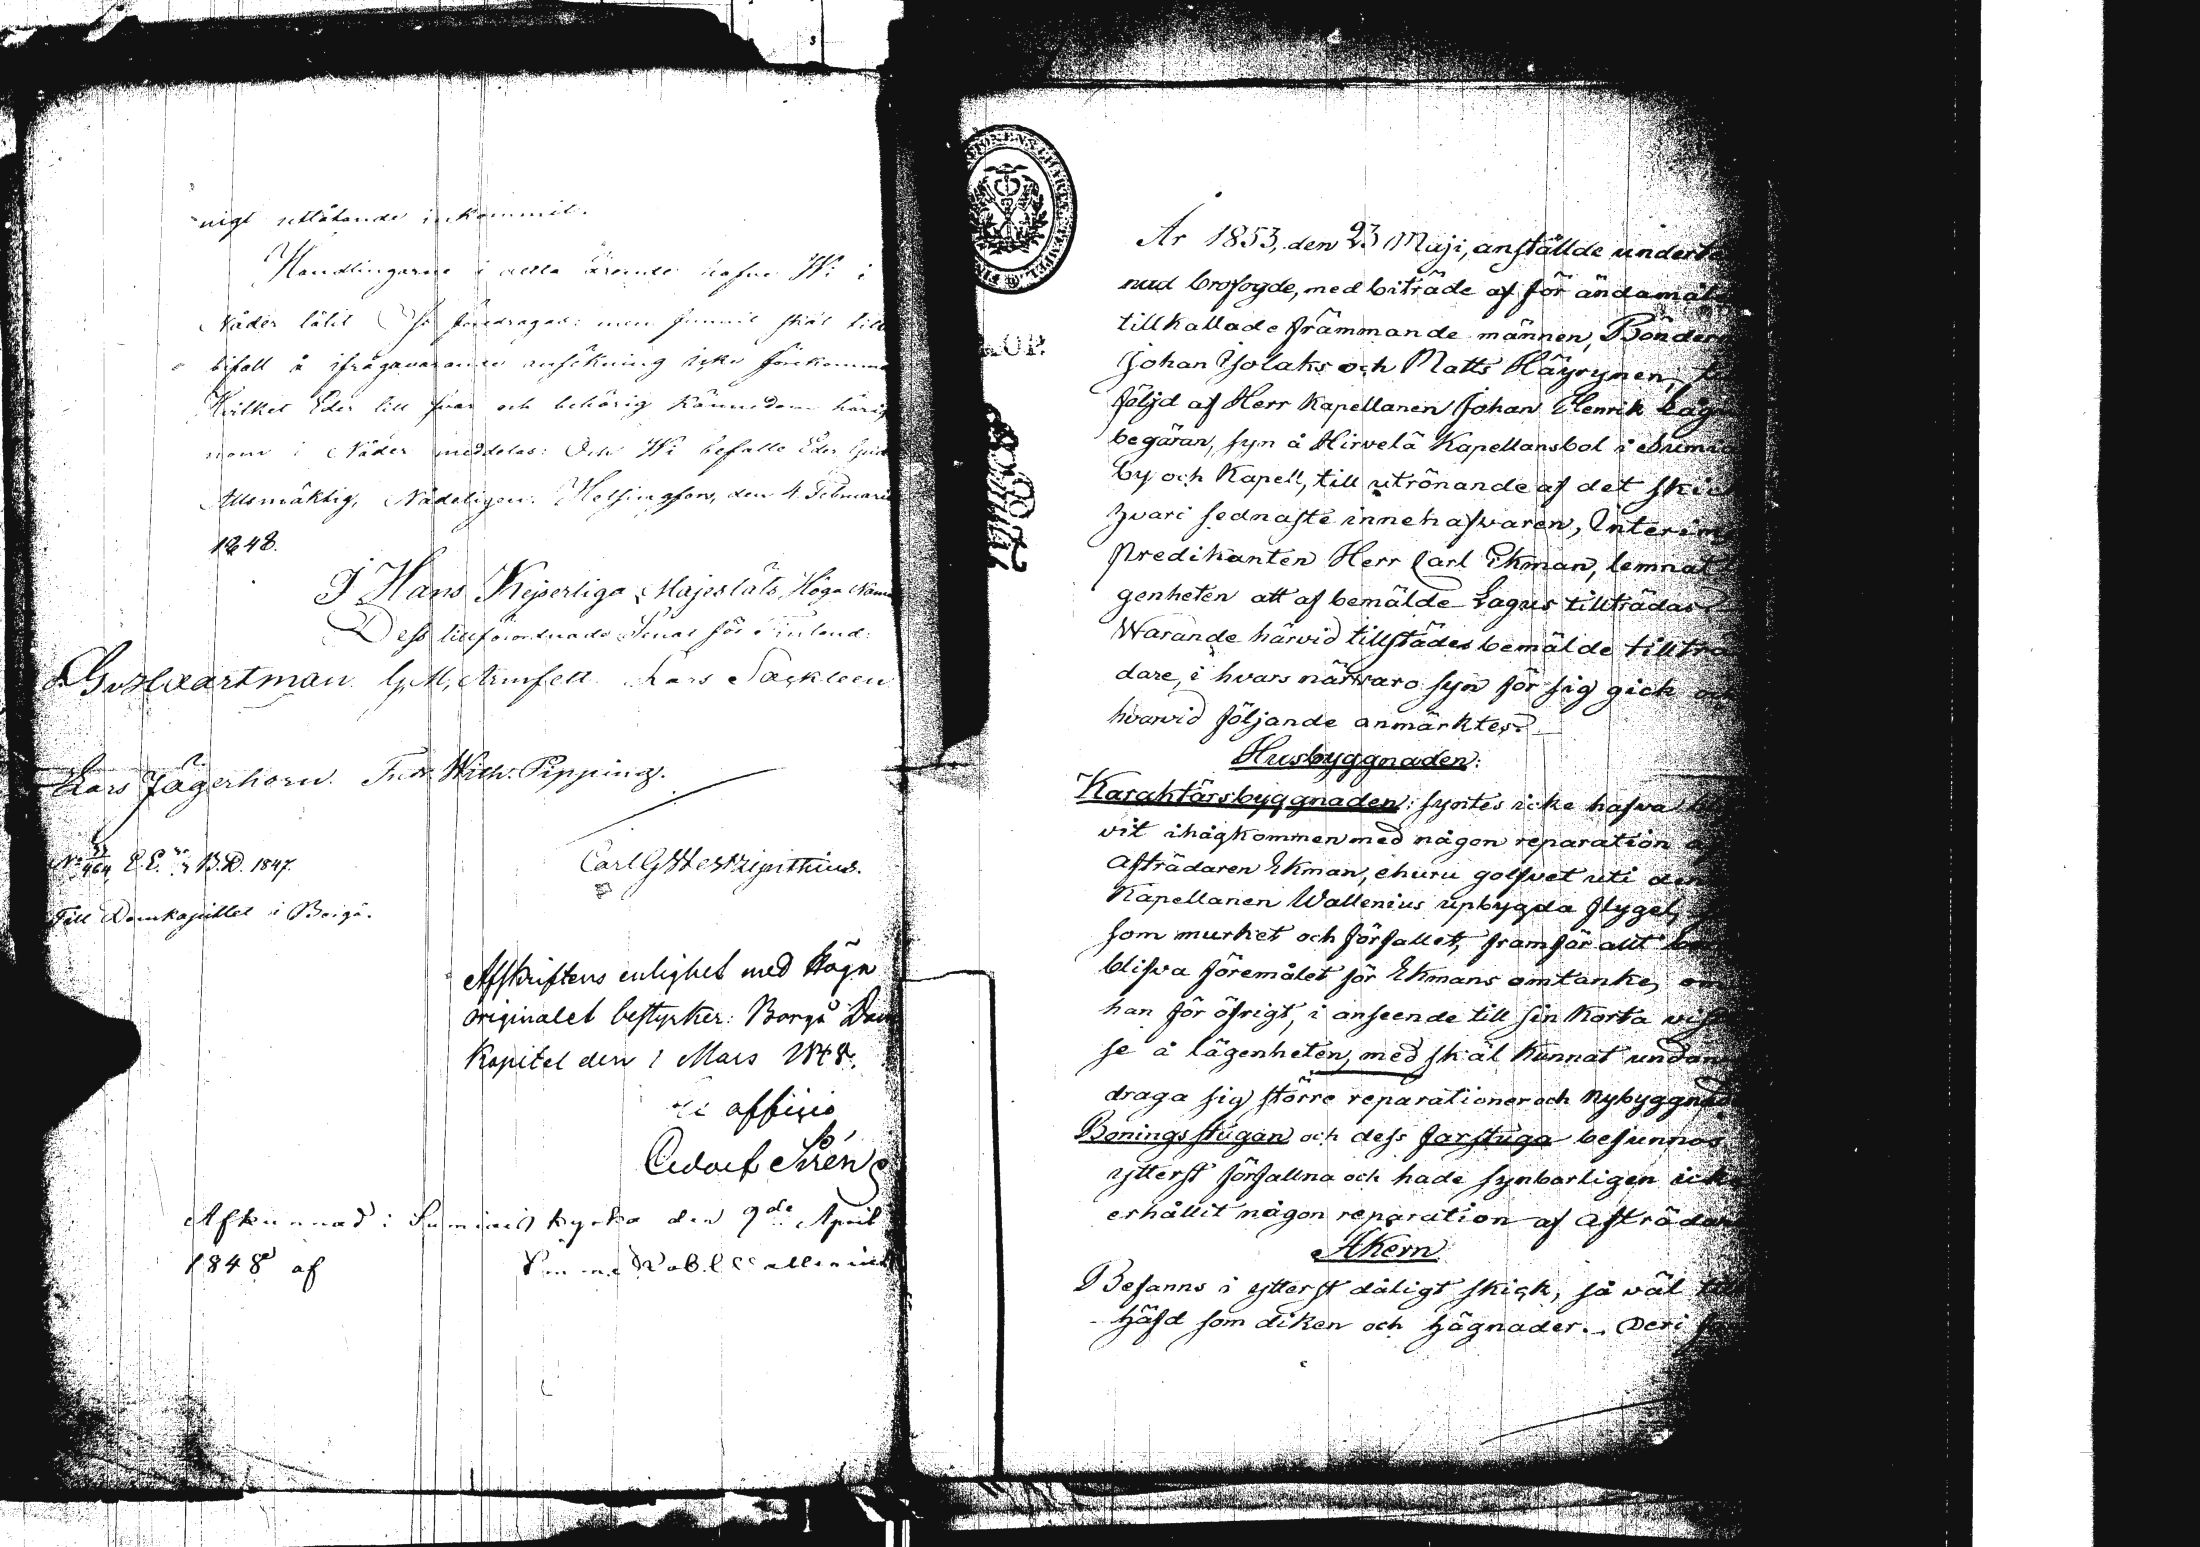 nigt utlåtande inkommit.
Handlingarne i detta ärende hafve Wi i
Nåder låtit föredragas: men funnit skäl till
bifall å ifrågavarande ansökning icke förekomma
Hvilket Eder till svar och behörig kännedom härig
nom i Nåder meddelas: Och Wi befalle Eder Gud
Allsmäktig, Nådeligen. Helsingfors, den 4 Februarii
1848.
I Hans Kejserliga Majestäts Höga Namn
Dess tillförordnade Senat för Finland:
L. G. v. Haartman. G. M. Armfelt. Lars Sackleen
Lars Jägerhorn. Fredr. Wilh. Pipping.
No 464, E. E. B.D. 1847.
Till Domkapitlet i Borgå.
Afskriftens enlighet med Höga
originalet bestyrker: Borgå Dom
Kapitel den 1 Mars 1848.
Ex officio
Adolf Sirén
Afkunnad i Sumiais kyrka den 9de April
1848 af
År 1853, den 23 Maji, anställde underteck
nad brofogde, med biträde af för ändamål
tillkallade främmande männen, Bönder
Johan Isolaks och Matts Häyrynen,
följd af Herr Kapellanen Johan Henrik Lagus
begäran, syn å Hirvelä Kapellansbol i Sumiais
by och Kapell, till utrönande af det skick
hvari sednaste innehafvaren, Interims
predikanten Herr Carl Ekman, lemnat
genheten att af bemälde Lagus tillträdas
Warande härvid tillstädes bemälde tillträ
dare, i hvars närvaro syn för sig gick och
hvarvid följande anmärktes:
Husbyggnaden:
Karaktärsbyggnaden: syntes icke hafva bli
vit ihågkommen med någon reparation af
Afträdaren Ekman, churu golfvet uti den
Kapellanen Wallenius upbygda flygel,
som murket och förfallet, framför allt
blifva föremålet för Ekmans omtanke, om
han för öfrigt, i anseende till sin korta vistel
se å lägenheten, med skäl kunnat undan
draga sig större reparationer och nybyggnad
Boningsstugan och dess farstuga befunnos
ytterst förfallna och hade synbarligen icke
erhållit någon reparation af Afträdaren
Åkern
Befanns i ytterst dåligt skick, så väl till
häfd som diken och hägnader. Deri